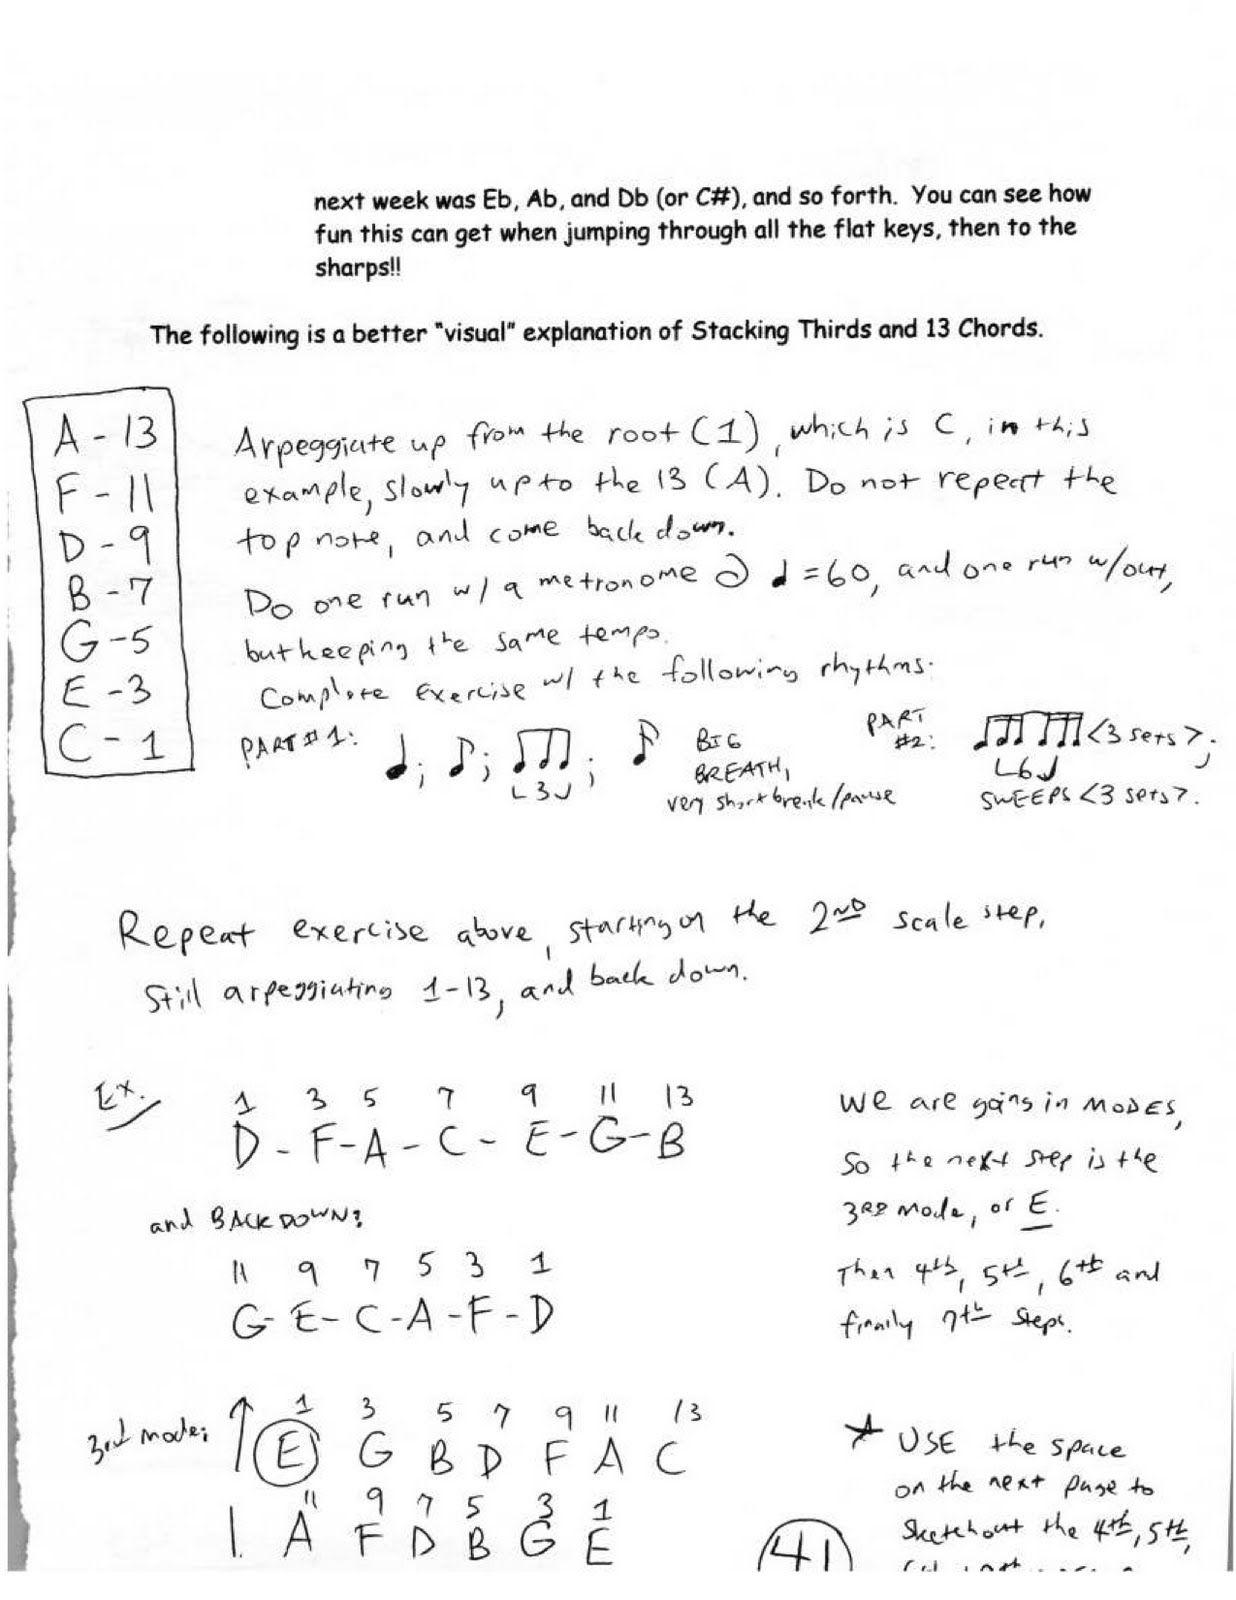 next week was Eb, Ab, and Db (or C#), and so forth. You can see how
fun this can get when jumping through all the flat keys, then to the
sharps!!
The following is a better "visual" explanation of Stacking Thirds and 13 Chords.
A - 13
F - 11
D - 9
B - 7
G - 5
E - 3
C - 1
Arpeggiate up from the root (1), which is C, in this
example, slowly up to the 13 (A). Do not repeat the
top note, and come back down.
Do one run w/ a metronome @ ♩=60, and one run w/out,
but keeping the same tempo.
Complete exercise w/ the following rhythms:
PART #1: ♩; ♪; 3; ♪
BIG
BREATH,
very short break/pause
PART
#2:
<3 sets>;
6
SWEEPS <3 sets>.
Repeat exercise above, starting on the 2ND scale step,
Still arpeggiating 1-13, and back down.
Ex.
1 3 5 7 9 11 13
D - F - A - C - E - G - B
and BACK DOWN:
11 9 7 5 3 1
G - E - C - A - F - D
We are going in MODES,
So the next step is the
3RD mode, or E.
Then 4th, 5th, 6th and
finally 7th steps.
3rd mode:
1 3 5 7 9 11 13
E G B D F A C
11 9 7 5 3 1
A F D B G E
* USE the space
on the next page to
Sketch out the 4th, 5th,
41